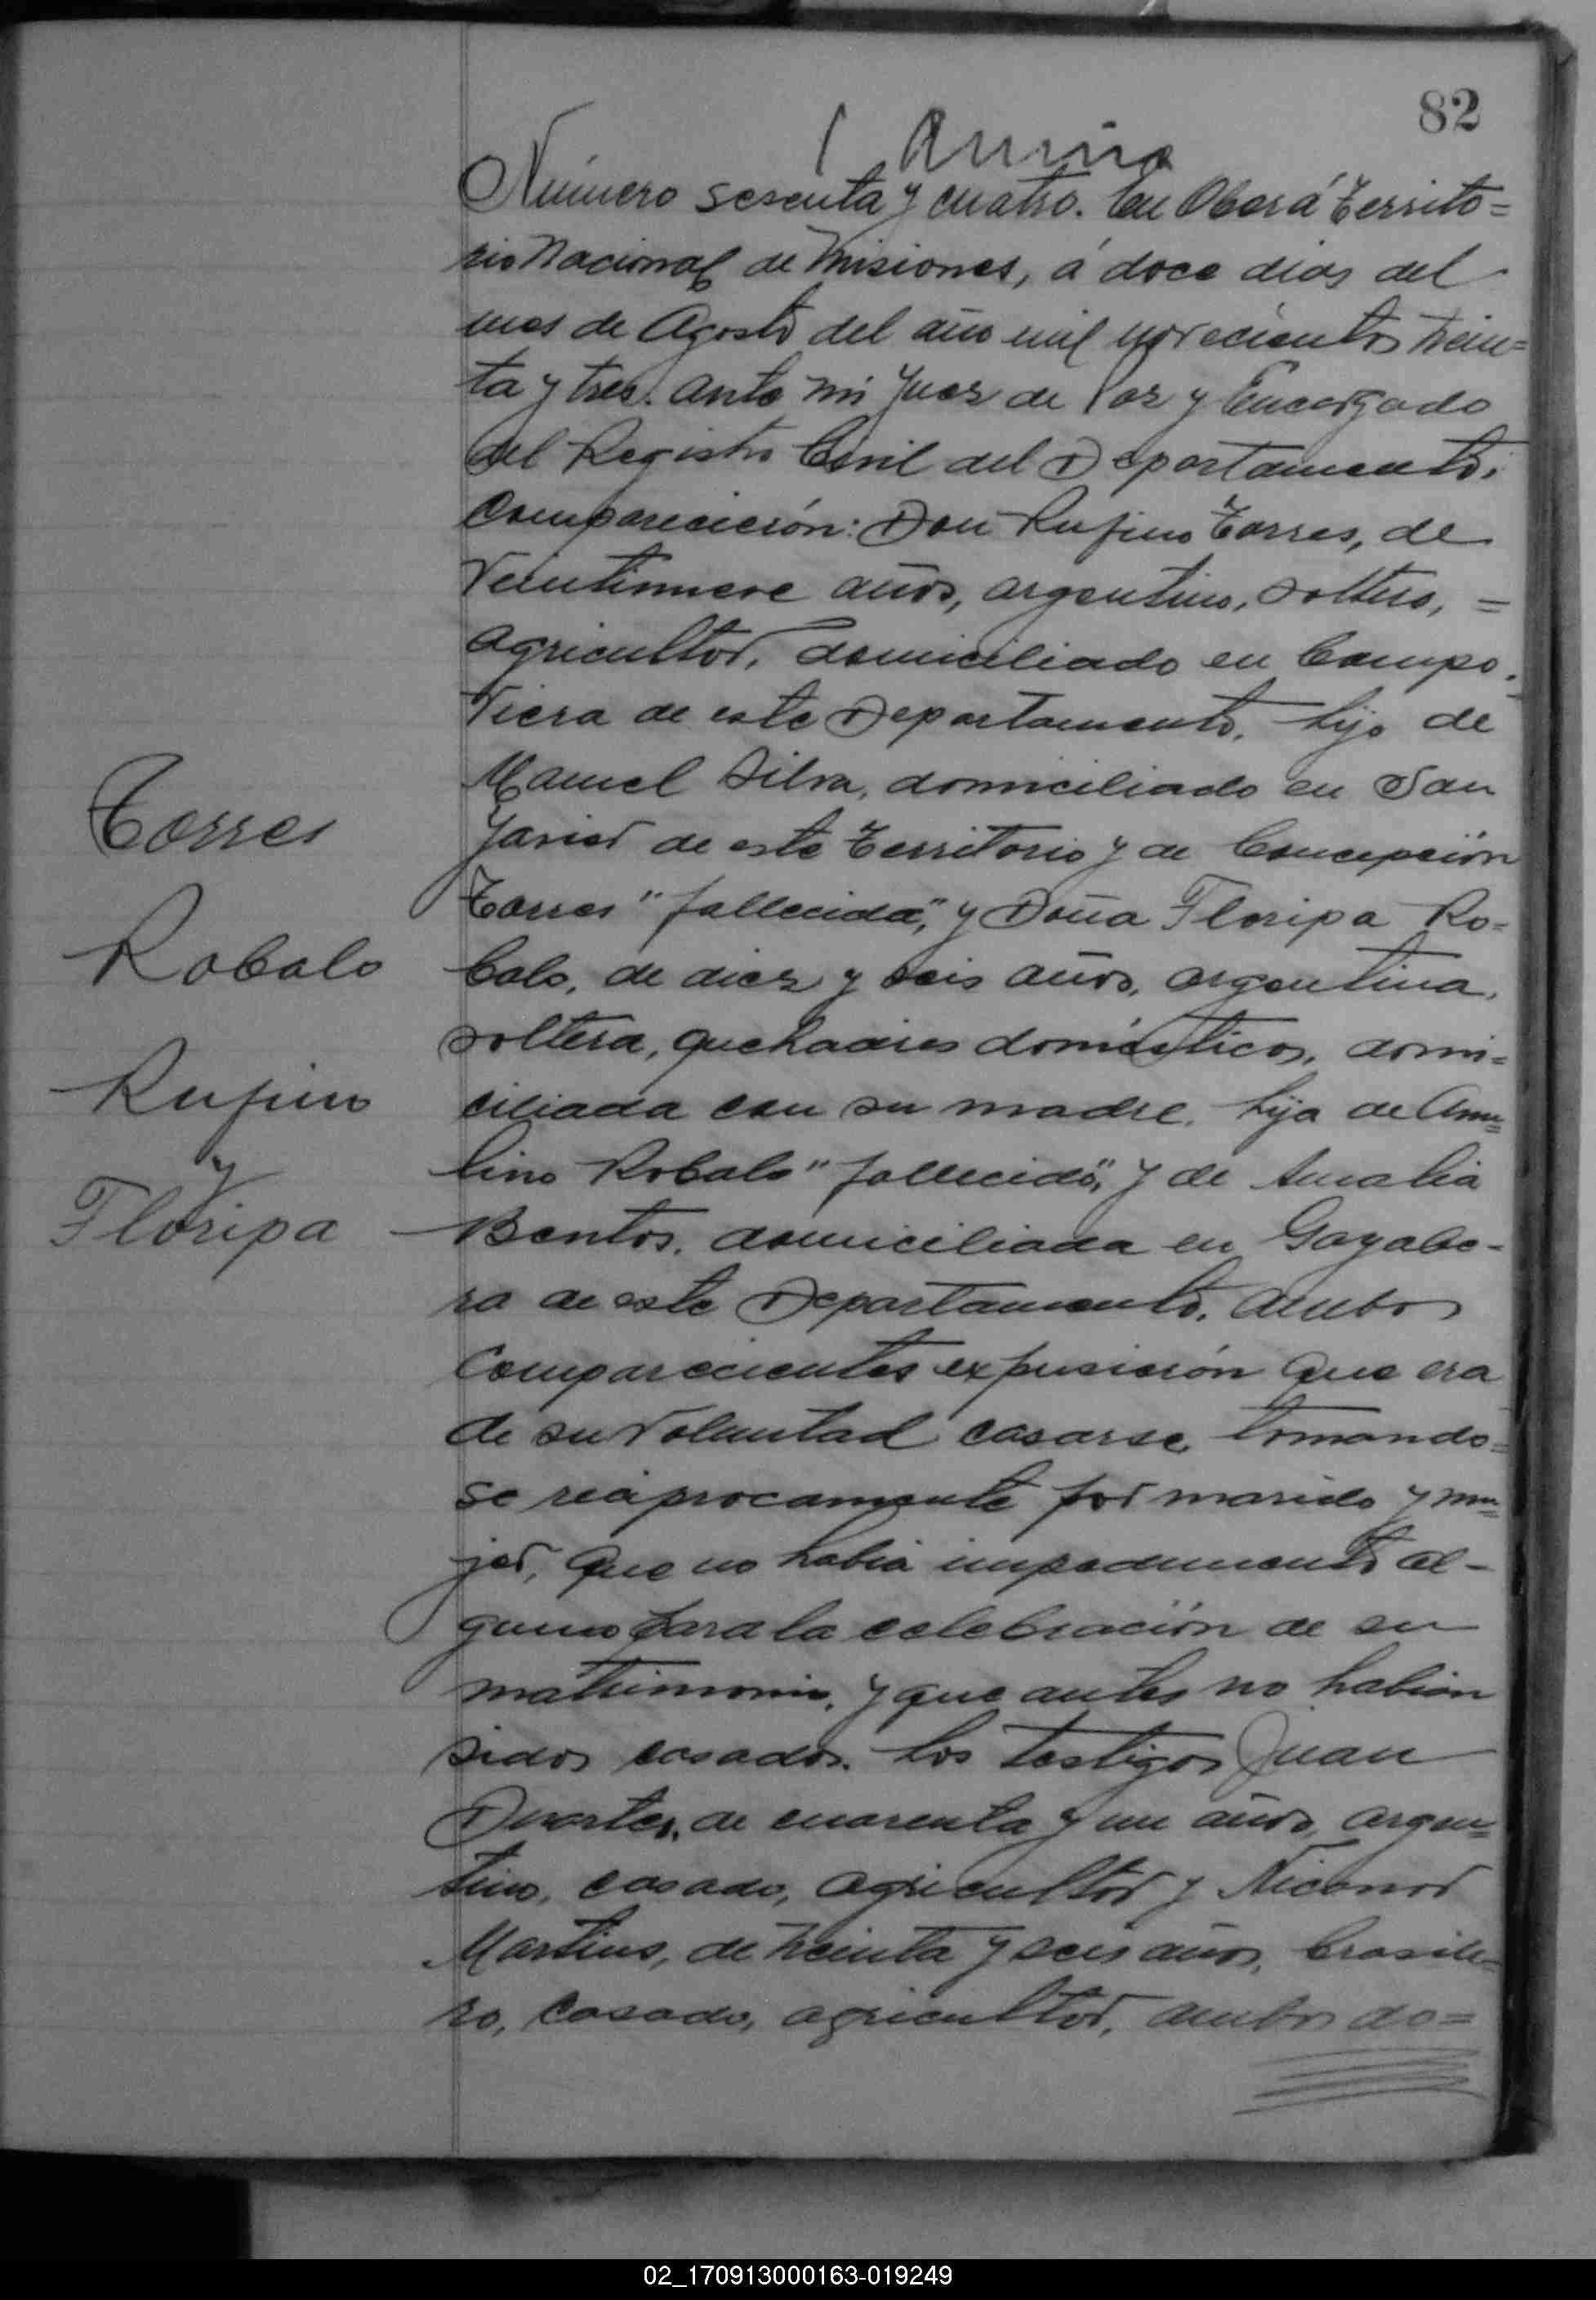 82
Número sesenta y cuatro. En Oberá Territo=
rio Nacional de Misiones, á doce dias del
mes de Agosto del año mil novecientos trein=
ta y tres. Ante mi Juez de Paz y Encargado
del Registro Civil del Departamento,
Comparecierón: Don Rufino Torres, de
Veintinueve años, argentino, soltero, =
agricultor, domiciliado en Campo
Viera de este Departamento, hijo de
Manuel Silva, domiciliado en San
Javier de este Territorio y de Concepción
Torres "fallecida", y Doña Floripa Ro=
balo, de diez y seis años, argentina,
soltera, quehaceres domésticos, domi=
ciliada con su madre, hija de
lino Robalo "fallecido", y de Amalia
Bentos, domiciliada en
ra de este Departamento. Ambos
Comparecientes expusierón que era
de su voluntad casarse, tomando=
se reciprocamente por marido y mu=
jer, que no habia impedimento al-
guno para la celebración de su
matrimonio, y que antes no habian
sidos casados. Los testigos Juan
Duarte, de cuarenta y un años, argen=
tino, casado, agricultor y Nicanor
Martins, de treinta y seis años, brasile=
ro, casado, agricultor, ambos do=
Torres
Robalo
Rufino
y
Floripa
02_170913000163-019249